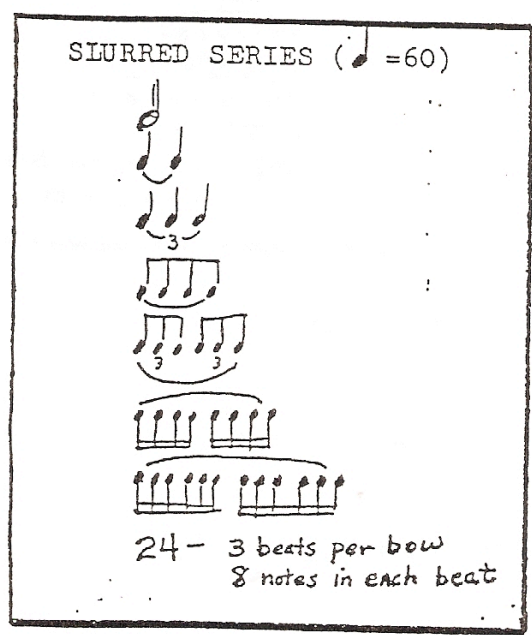 SLURRED SERIES (♩=60)
3
3 3
24- 3 beats per bow
8 notes in each beat